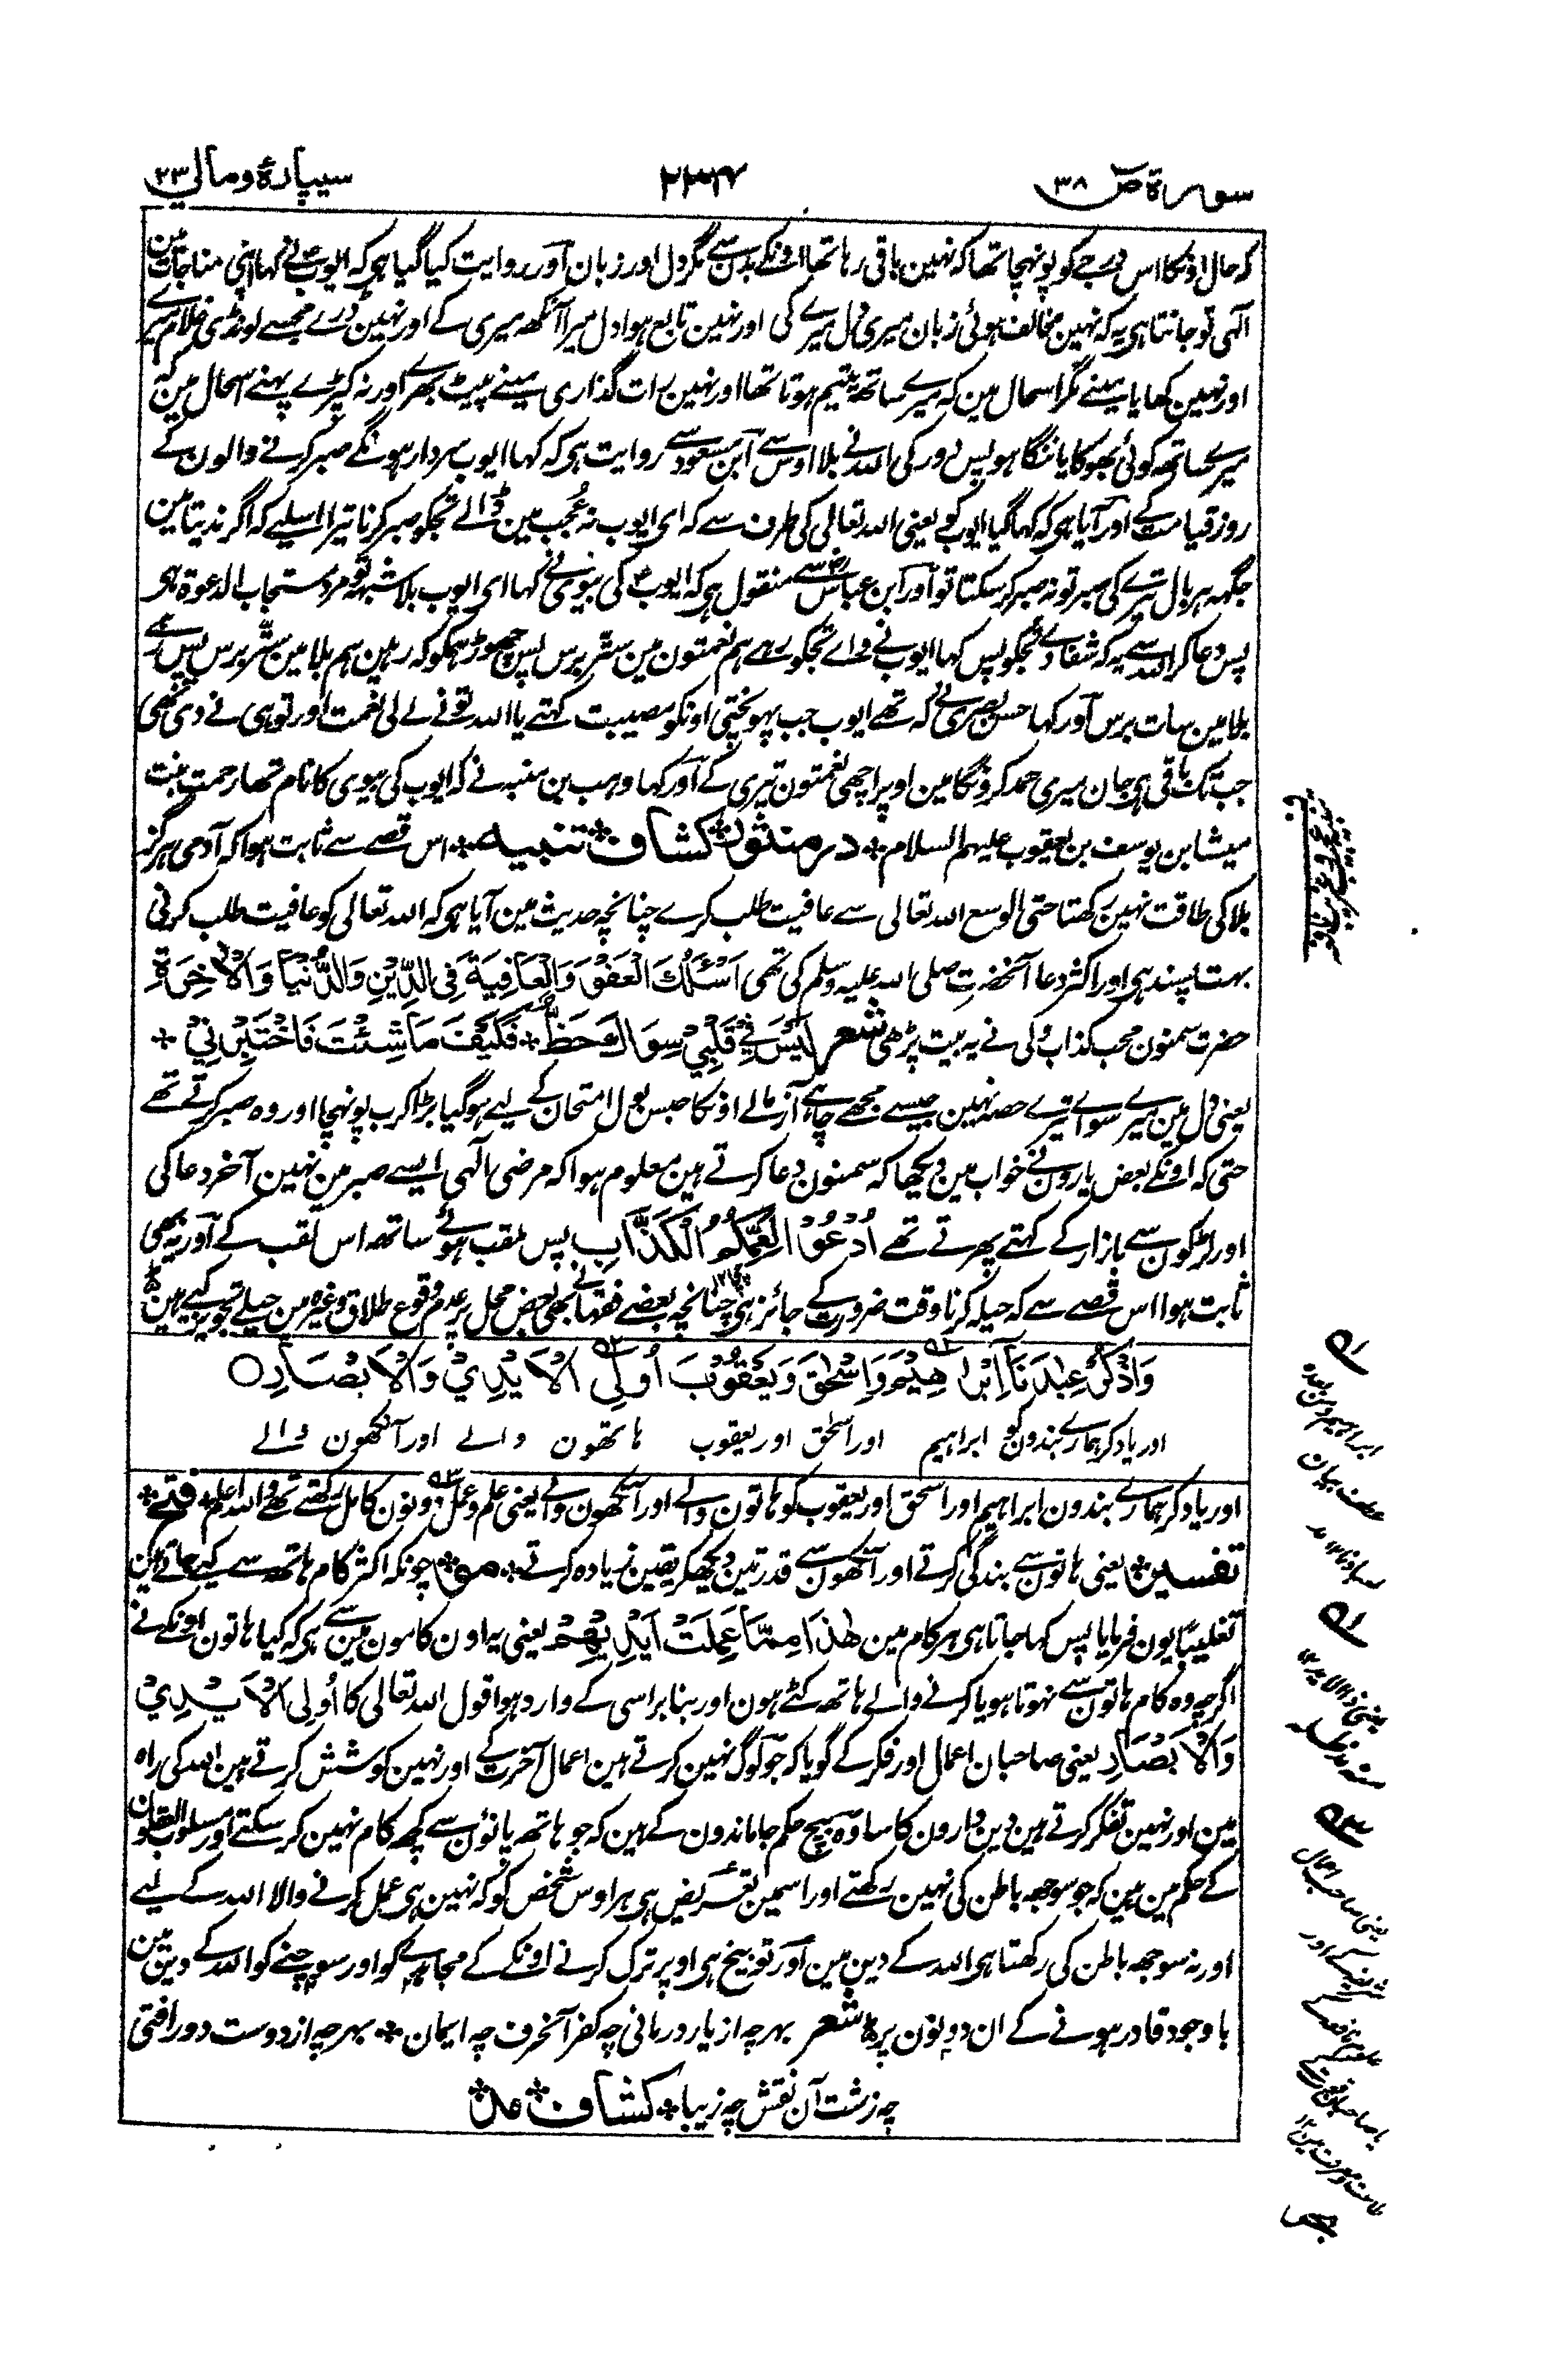 سورۃ ص ۳۸
۲۳۴۷
سیپارۂ ومالی ۲۳
کہ حال اونکا اس درجے کو پونہچا تھا کہ نہین باقی رہا تھا اونکے بدن سے مگر دل اور زبان اور روایت کیا گیا ہی کہ ایوبؑ نے کہا اپنی مناجات مین
آلہی تو جانتا ہی یہ کہ نہین مخالف ہوئی زبان میری دل میرے کی اور نہین تابع ہوا دل میرا آنکھ میری کے اور نہین ڈرے مجھسے لونڈی غلام میرے
اور نہین کھایا مینے مگر اسحال مین کہ میرے ساتھ یتیم ہوتا تھا اور نہین رات گذاری مینے پیٹ بھرے اور نہ کپڑے پہنے اسحال مین کہ
میرے ساتھ کوئی بھوکا یا ننگا ہو پس دور کی اللہ نے بلا اوس سے ابن مسعود سے روایت ہی کہ کہا ایوب سردار ہونگے صبر کرنے والون کے
روز قیامت کے اور آیا ہی کہ کہا گیا ایوب کو یعنی اللہ تعالی کی طرف سے کہ ای ایوب نہ عُجب مین ڈالے تجکو صبر کرنا تیرا اسلیے کہ اگر ندیتا مین
جگہہ ہر بال تیرے کی صبر تو نہ صبر کر سکتا تو اور ابن عباسؓ سے منقول ہی کہ ایوبؑ کی بیوی نے کہا ای ایوب بلا شبہہ تو مرد مستجاب الدعوۃ ہی
پس دعا کر اللہ سے یہ کہ شفا دے تجکو پس کہا ایوب نے واے تجکو رہے ہم نعمتون مین ستّر برس پس چھوڑ ہمکو کہ رہین ہم بلا مین ستّر برس پس رہے
بلا مین سات برس اور کہا حسن بصری نے کہ تھے ایوب جب پہونچتی اونکو مصیبت کہتے یا اللہ تو نے لے لی نعمت اور تو ہی نے دی تھی
جب تک باقی ہی جان میری حمد کرونگا مین اوپر اچھی نعمتون تیری کے اور کہا وہب بن منبہ نے کہ ایوب کی بیوی کا نام تھا رحمت بنت
میشا بن یوسف بن یعقوب علیہم السلام٭ درمنثور٭ کشاف٭ تنبیہ٭ اس قصے سے ثابت ہوا کہ آدمی ہرگز
بلا کی طاقت نہین رکھتا حتی الوسع اللہ تعالی سے عافیت طلب کرے چنانچہ حدیث مین آیا ہی کہ اللہ تعالی کو عافیت طلب کرنی
بہت پسند ہی اور اکثر دعا آنحضرت صلی اللہ علیہ وسلم کی تھی اَسْئَلُكَ الْعَفْوَ وَالْعَافِيَةَ فِي الدِّيْنِ وَالدُّنْيَا وَالْاٰخِرَةِ
حضرت سمنون محب کذاب ولی نے یہ بیت پڑھی شعر لَيْسَ فِيْ قَلْبِيْ سِوَاكَ حَظٌّ٭ فَكَيْفَ مَا شِئْتَ فَاخْتَبِرْنِيْ٭
یعنی دل مین میرے سواے تیرے حصہ نہین جیسے مجھے چاہے آزمالے اونکا حبس بول امتحان کے لیے ہو گیا بڑا کرب پونہچا اور وہ صبر کرتے تھے
حتی کہ اونکے بعض یارون نے خواب مین دیکھا کہ سمنون دعا کرتے ہین معلوم ہوا کہ مرضی الٰہی ایسے صبر مین نہین آخر دعا کی
اور لڑکون سے بازار کے کہتے پھرتے تھے اُدْعُوْا لِعَمِّكُمُ الْكَذَّابِ پس ملقب ہوئے ساتھ اس لقب کے اور یہ بھی
ثابت ہوا اس قصے سے کہ حیلہ کرنا وقت ضرورت کے جائز ہی چنانچہ بعضے فقہا نے بھی بعض محل پر عدم وقوع طلاق وغیرہ مین حیلے تجویز کیے ہین
وَاذْكُرْ عِبٰدَنَآ اِبْرٰهِيْمَ وَاِسْحٰقَ وَيَعْقُوْبَ اُولِي الْاَيْدِيْ وَالْاَبْصَارِ○
اور یاد کر ہمارے بندون کو ابراہیم اور اسحٰق اور یعقوب ہاتھون والے اور آنکھون والے
اور یاد کر ہمارے بندون ابراہیم اور اسحق اور یعقوب کو ہاتون والے اور آنکھون والے یعنی علم و عمل دونون کامل رکھتے تھے واللہ اعلم٭ فتح٭
تفسیر٭ یعنی ہاتون سے بندگی کرتے اور آنکھون سے قدرتین دیکھکر یقین زیادہ کرتے٭ مو٭ چونکہ اکثر کام ہاتھ سے کیے جاتے ہین
تغلیبًا یون فرمایا پس کہا جاتا ہی ہر کام مین هٰذَا مِمَّا عَمِلَتْ اَيْدِيْهِمْ یعنی یہ اون کامون مین سے ہی کہ کیا ہاتون اونکے نے
اگرچہ وہ کام ہاتون سے نہوتا ہو یا کرنے والے ہاتھ کٹے ہون اور بنابر اسی کے وارد ہوا قول اللہ تعالی کا اُولِي الْاَيْدِيْ
وَالْاَبْصَارِ یعنی صاحبان اعمال اور فکر کے گویا کہ جو لوگ نہین کرتے ہین اعمال آخرت کے اور نہین کوشش کرتے ہین اللہ کی راہ
مین اور نہین تفکر کرتے ہین دین دارون کا سا وہ بیچ حکم جاماندون کے ہین کہ جو ہاتھ پائون سے کچھ کام نہین کر سکتے اور مسلوب العقلون
کے حکم مین ہین کہ جو سوجھہ باطن کی نہین رکھتے اور اسمین تعریض ہی ہر اوس شخص کو کہ نہین ہی عمل کرنے والا اللہ کے لیے
اور نہ سوجھہ باطن کی رکھتا ہی اللہ کے دین مین اور توبیخ ہی اوپر ترک کرنے اونکے کے مجاہدے کو اور سوچنے کو اللہ کے دین مین
باوجود قادر ہونے کے ان دونون پر٭ شعر بہرچہ از یار درمانی چہ کفر آنحرف چہ ایمان٭ بہرچہ از دوست دور افتی
چہ زشت آن نقش چہ زیبا٭ کشاف٭ مد٭